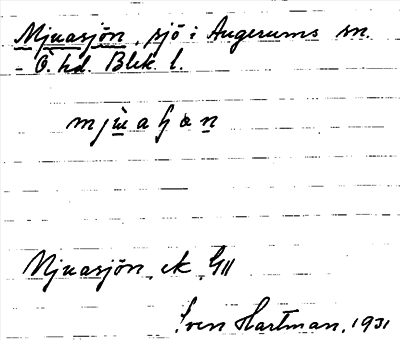 Mjuasjön, sjö i Augerums sn.
- Ö. hd. Blek. l.
Mjuasjön, ek
Sven Hartman, 1931